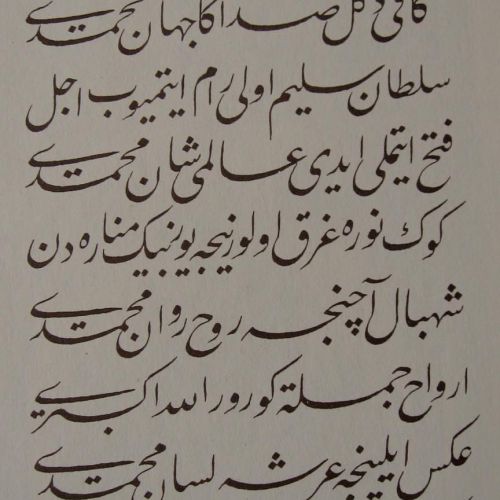 كافی دكل صداكا جهان محمدی
سلطان سلیم اولی رام ایتمیوب اجل
فتح ایتملی ایدی عالمی شان محمدی
كوك نوره غرق اولور نیجه یوزبیك مناره دن
شهبال آچنجه روح روان محمدی
ارواح جملةً كورور الله اكبری
عكس ایلینجه عرشه لسان محمدی